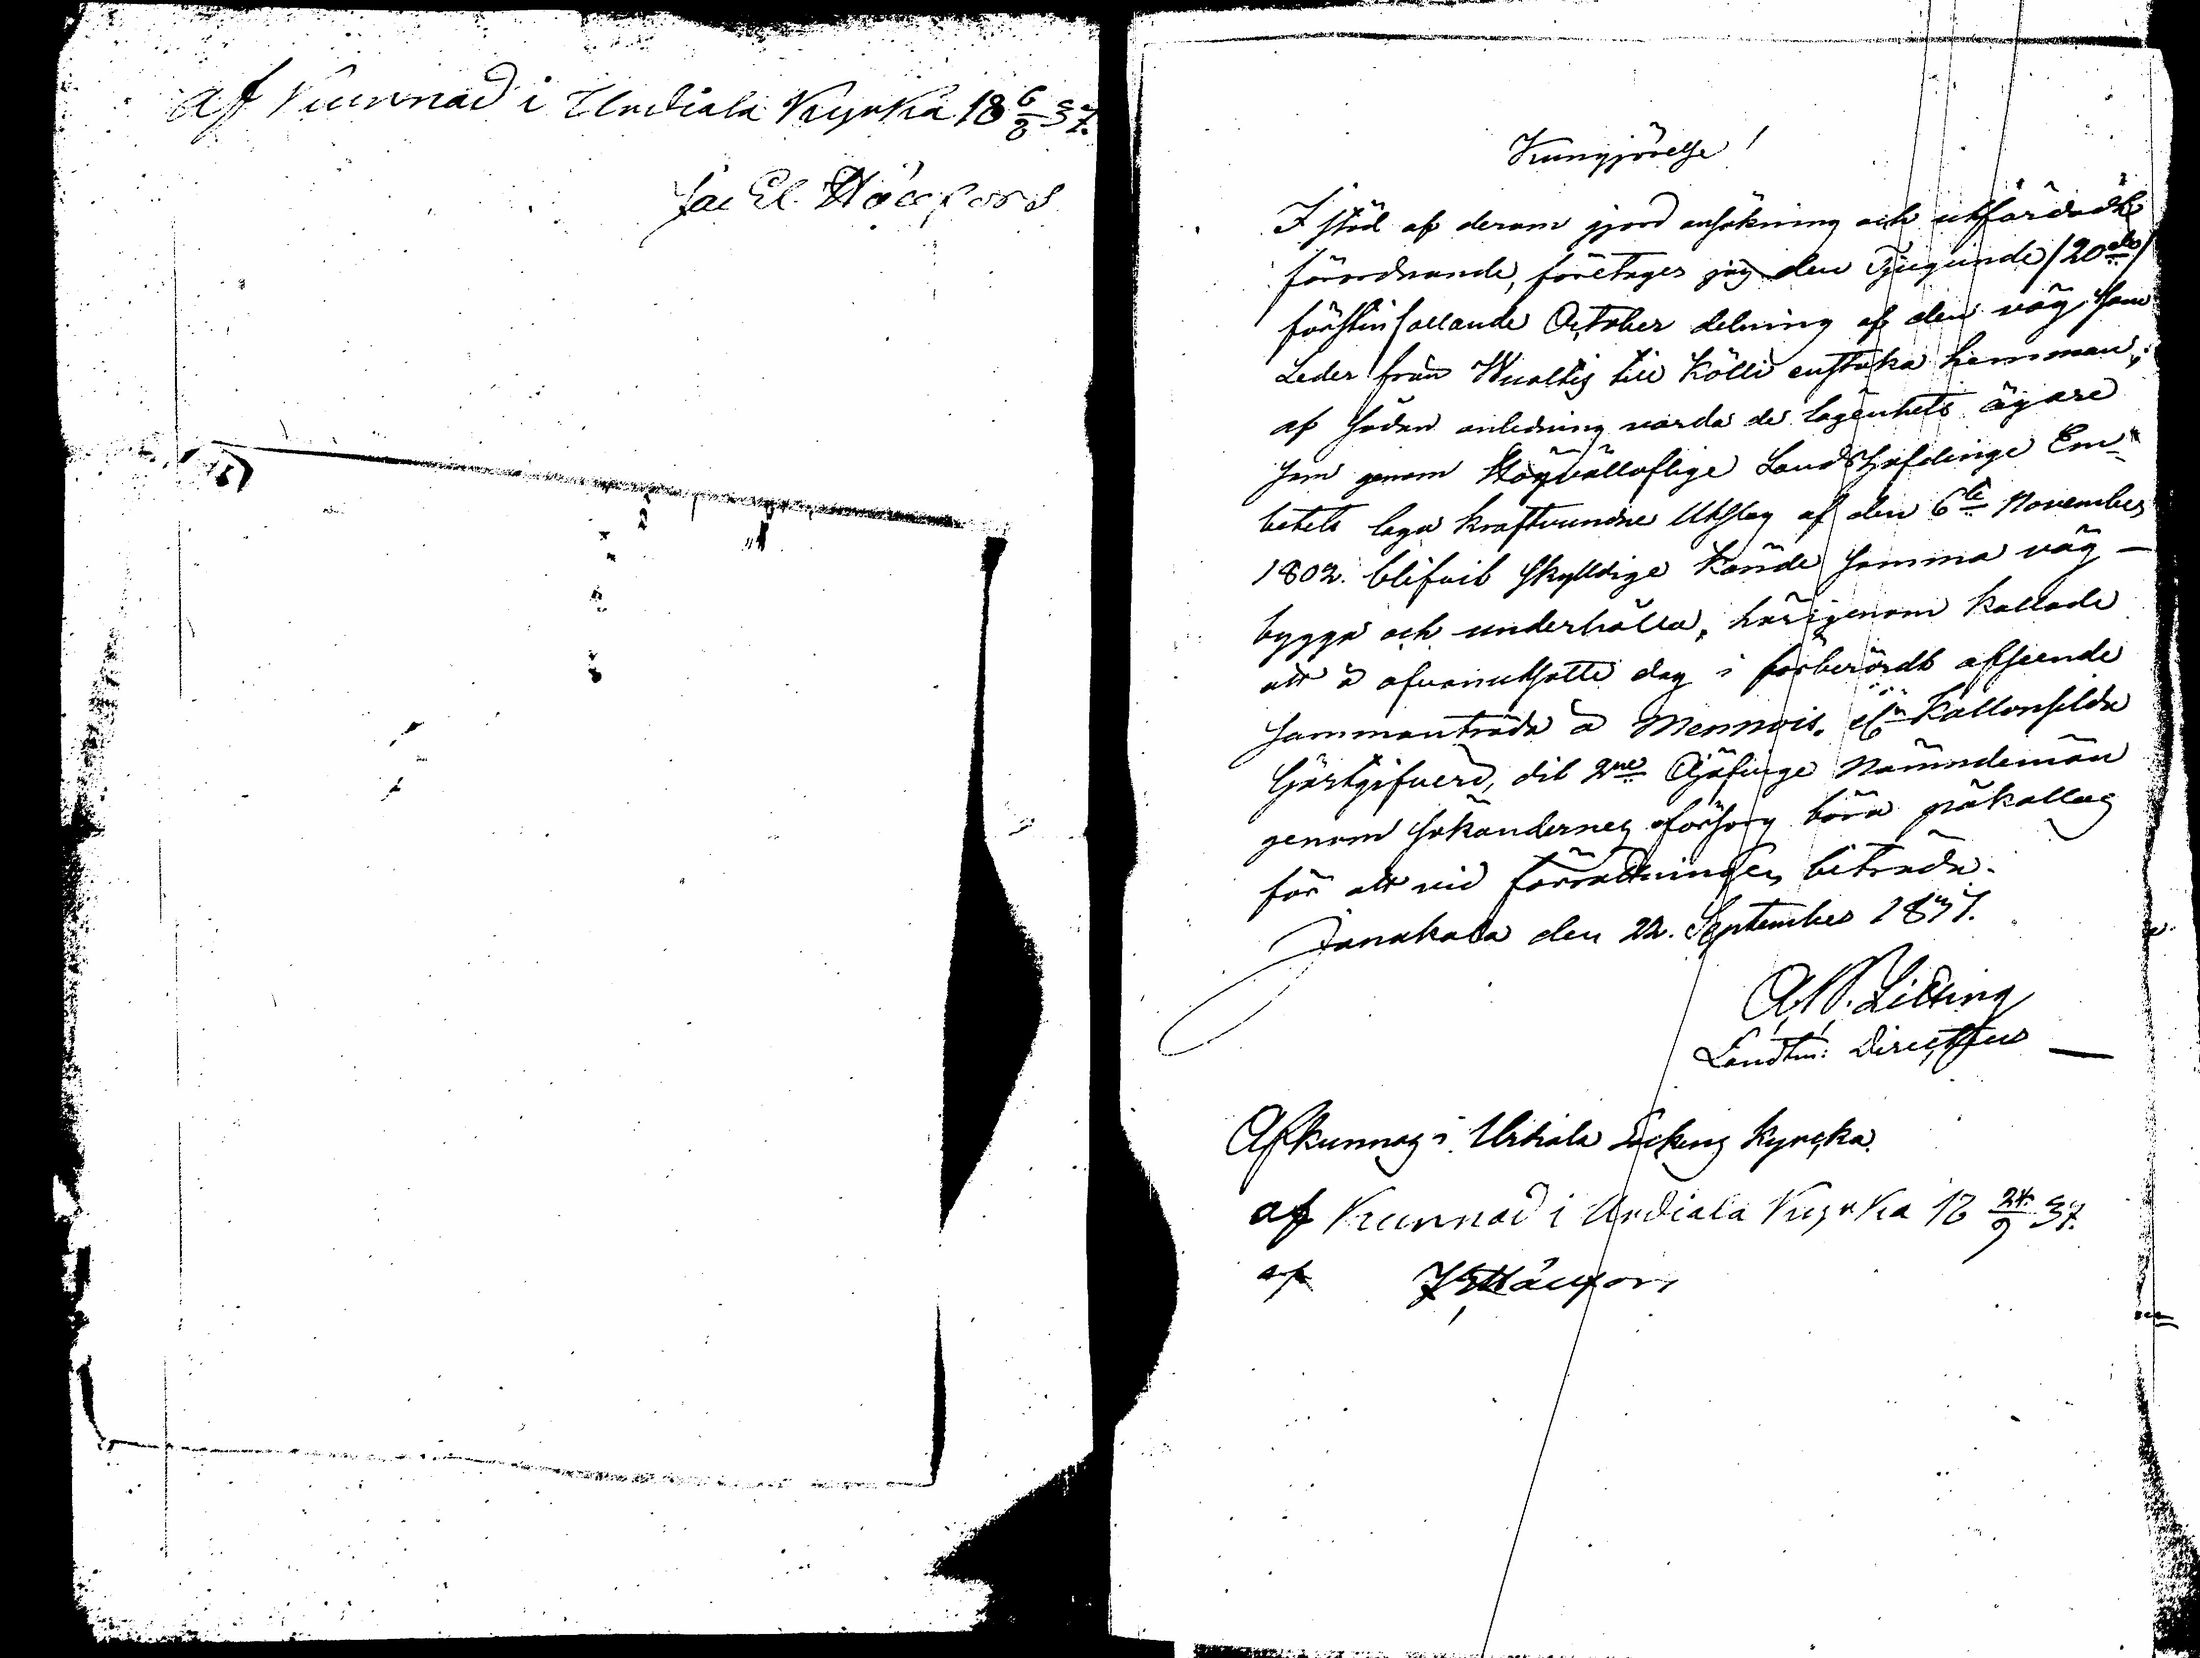 af Kunnad i Urdiala Kyrka 18 6/8 37.
Jac El
Kungjörelse!
I stöd af derom gjord ansökning och utfärdadt
förordnande, företager jag den Tjugunde /20de/
förstinfallande October delning af den väg, som
Leder från Wualtis till Kölli enstaka hemman;
af sådan anledning varda de lägenhets ägare
som genom Högvälloflige Landshöfdinge Em-
betets laga kraftvundne Utslag af den 6te November
1802. blifvit skyldige kände samma väg
bygga och underhålla, härigenom kallade
att å ofvanutsatte dag i förberördt afseende
sammanträda å Mennois, Kallonsilda
Gästgifveri, dit 2ne Ojäfvige Nämndemän
genom sökandernes försorg böra påkallas
för att vid förrättningen biträda.
Janakala den 22. September 1837.
Landtm: Directeur
Afkunnas i Urdiala Sockens Kyrcka.
af Kunnad i Urdiala Kyrka 18 24/9 37.
af